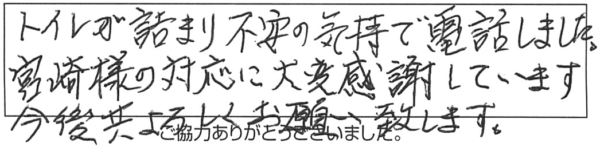 トイレが詰まり不安の気持で電話しました。
宮崎様の対応に大変感謝しています
今後共よろしくお願い致します。
ご協力ありがとうございました。